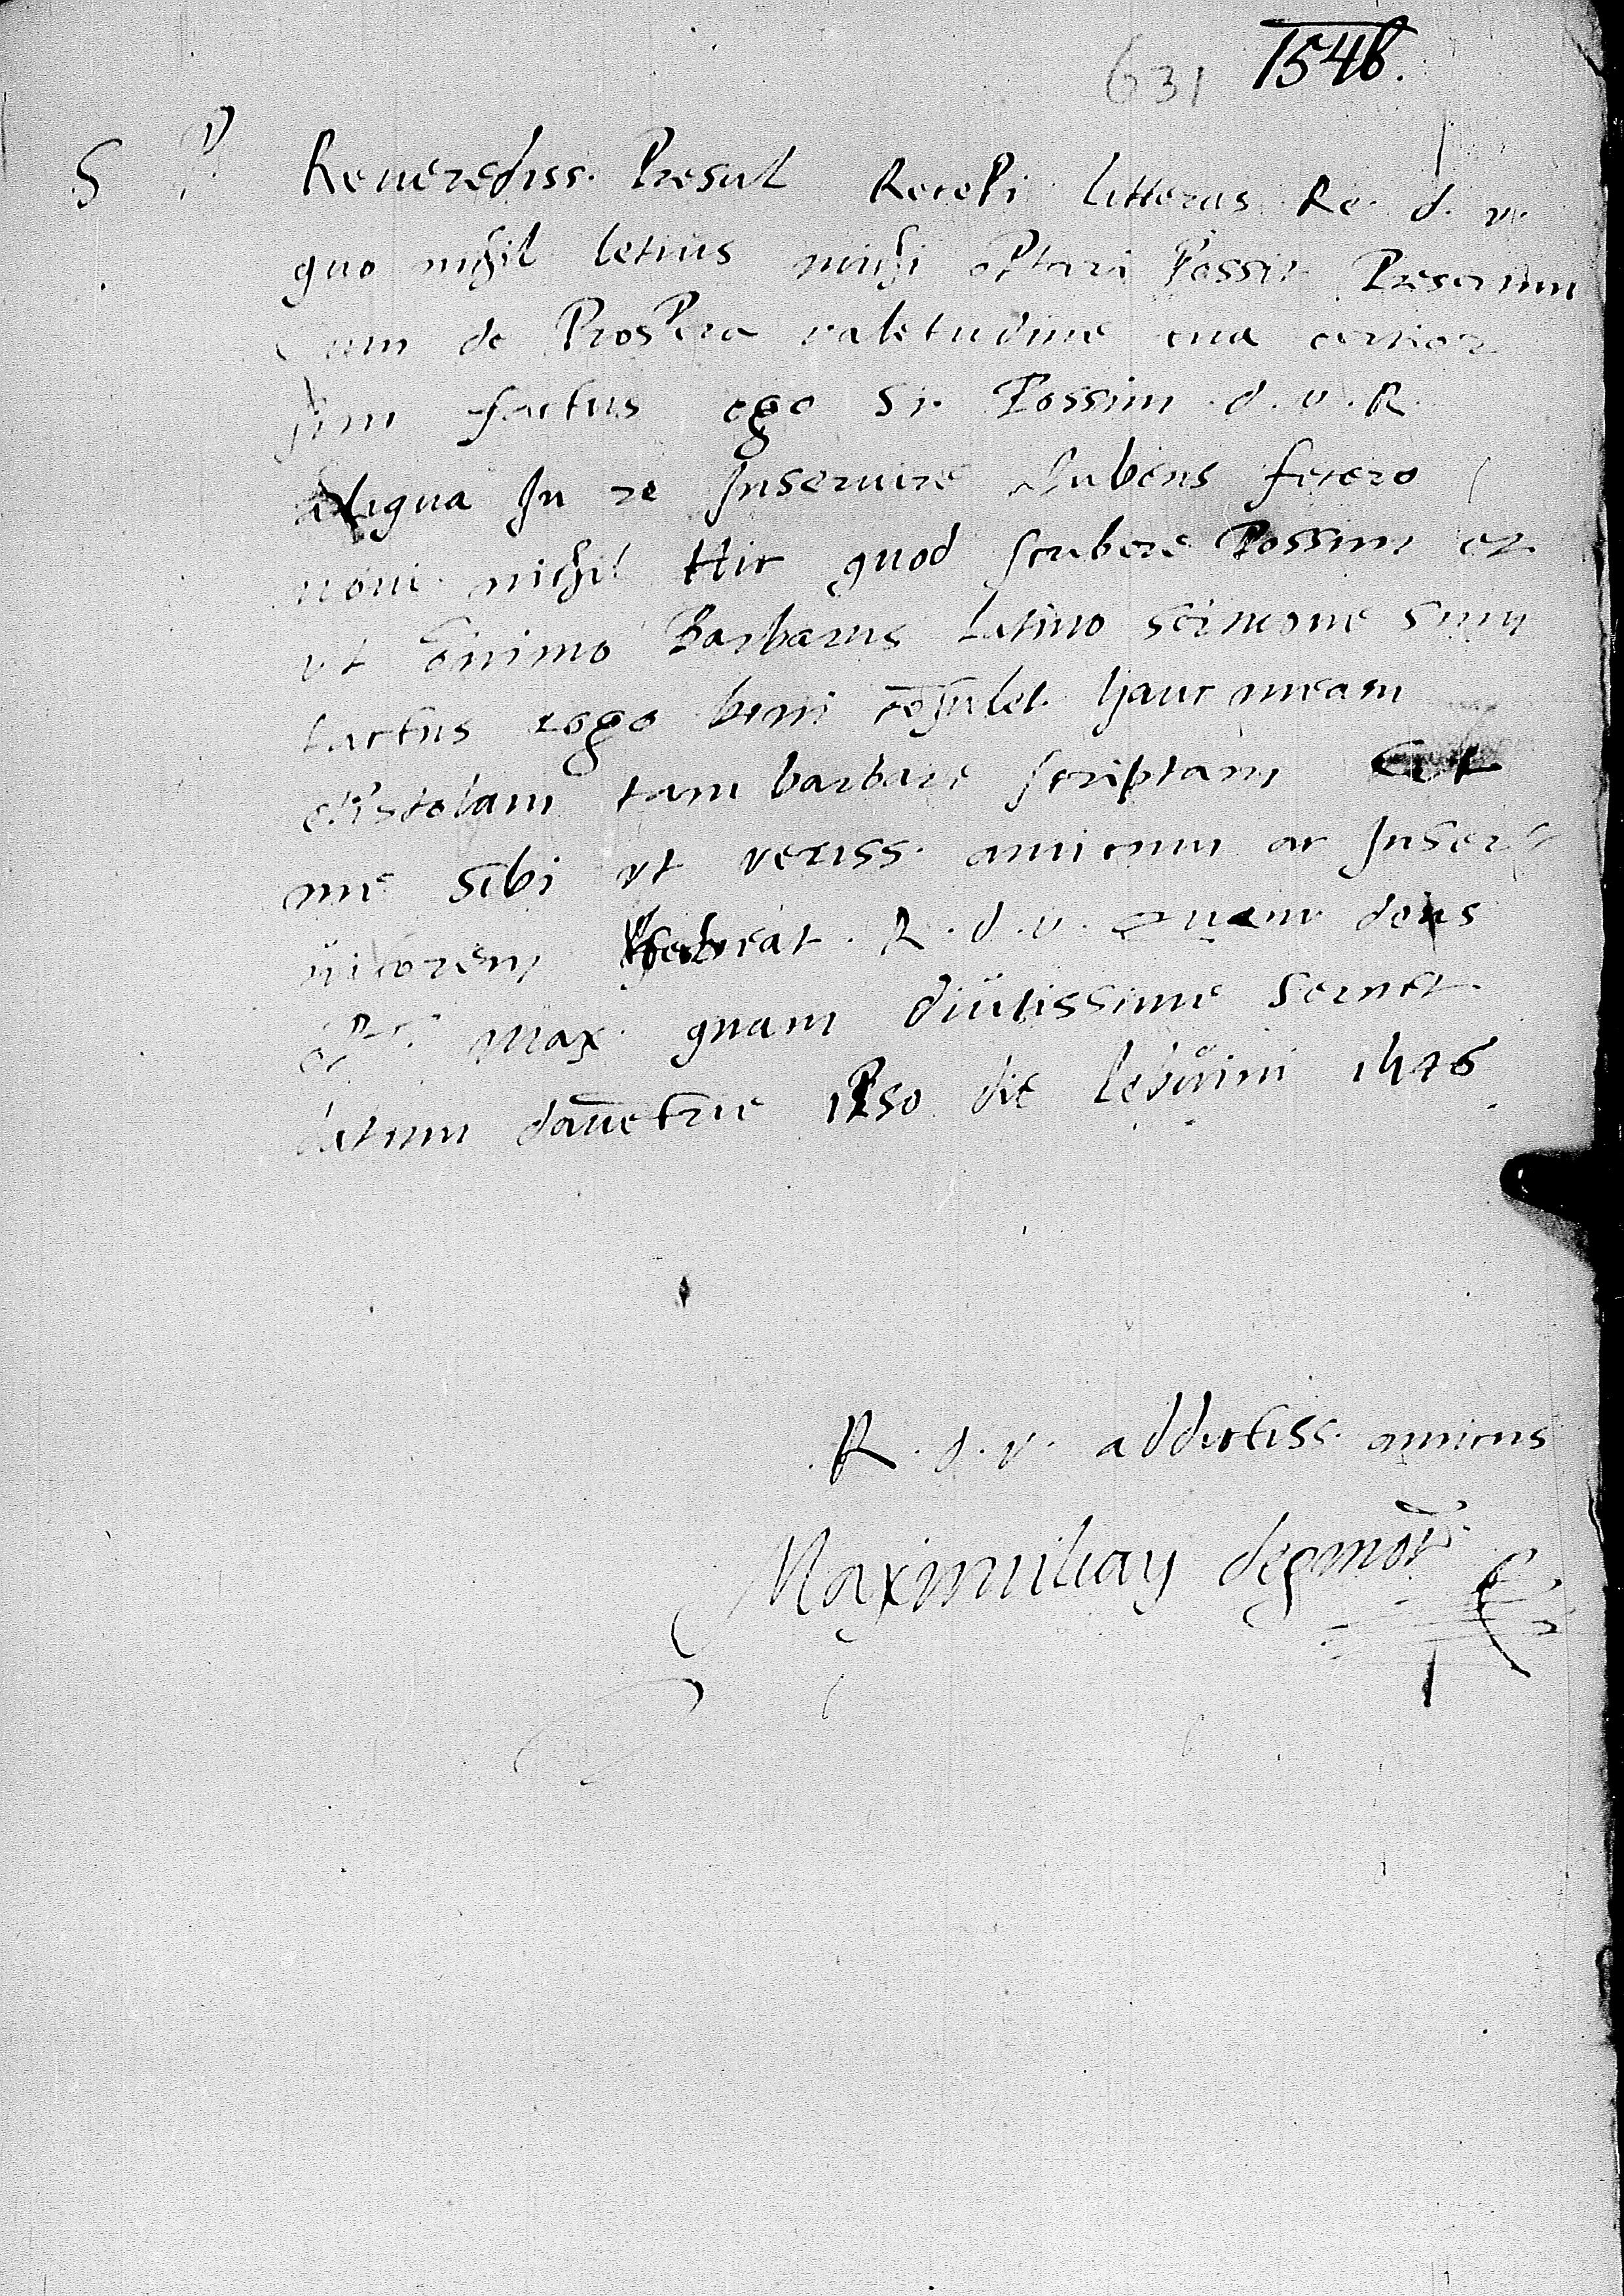 631 1546.
S P Reuerediss. Presul Recepi litteras Re. d. v.
quo nihil letius michi optari Possit Presertim
Cum de Prospera valetudine tua certior
sim factus ego Si. Possim. d. v. R.
aliqua In re Inseruire Lubens fecero
noui nichil Hic quod scribere Possim et
vt Barbarus Latino sermone sum
tactus rogo boni cōsulet hanc meam
epistolam tam barbare scriptam Et
me sibi vt veriss. amicum ac Inser-
uitorem R. d. v. Quam deus
opt. max. quam diutissime seruet.
datum dauētrie ipso die lebuini 1546
R. d. v. addictiss. amicus
Maximilian degmōt